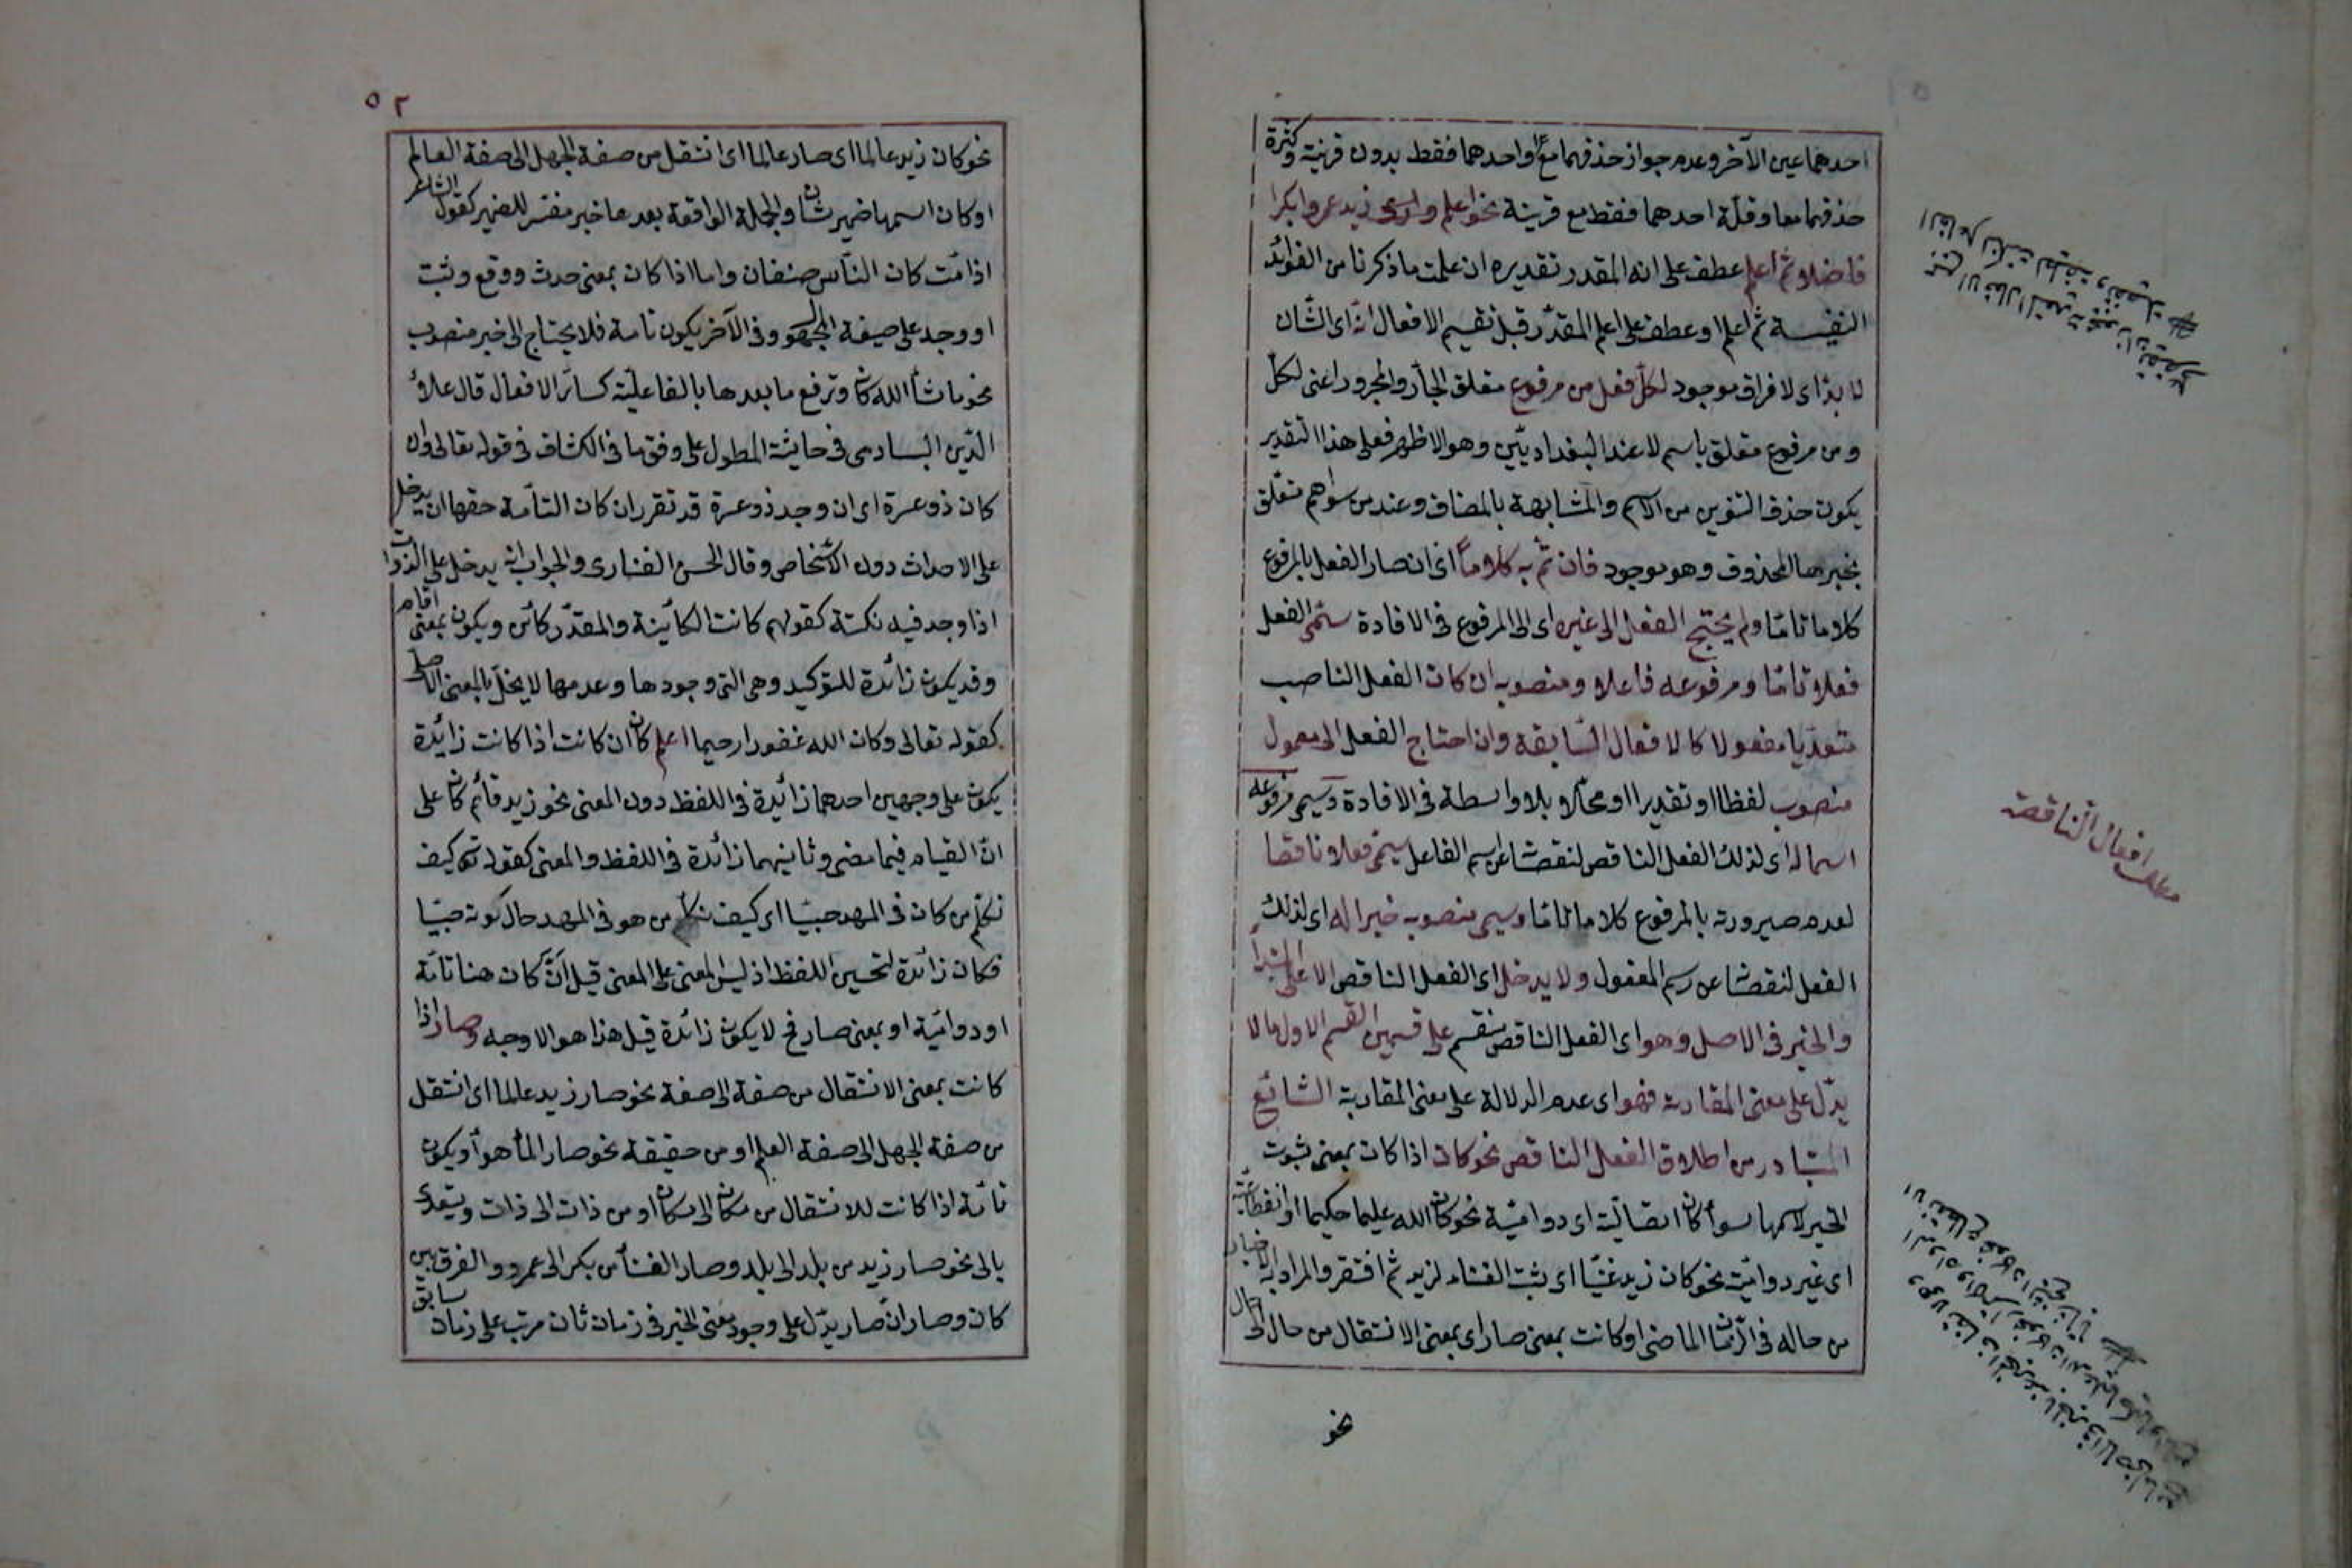 احدهما عين الآخر وعدم جواز حذفهما معًا او احدهما فقط بدون قرينة وكثرة
حذفهما معا وقلّة احدهما فقط مع قرينة نحو اعلم وارى زيد عمروا بكرا
فاضلا وثمّ اعلم عطف على انه المقدر تقديره ان علمت ما ذكرنا من الفوائد
النفيسة ثم اعلم او عطف على اعلم المقدّر قبل تقسيم الافعال انّه اى الشّان
لا بدّ اى لا فراق موجود لكلّ فعل من مرفوع متعلق الجارّ والمجرور اعنى لكل
ومن مرفوع متعلق باسم لا عند البغداديّين وهو الاظهر فعلى هذا التقدير
يكون حذف التنوين من الاسم والمشابهة بالمضاف وعند من سواهم متعلّق
بخبرها المحذوف وهو موجود فان تمّ به كلامًا اى ان صار الفعل بالمرفوع
كلاما تامّا ولم يحتج الفعل الى غيره اى الى المرفوع فى الافادة سمّى الفعل
فعلا تامّا ومرفوعه فاعلا ومنصوبه ان كان الفعل الناصب
متعدّيا مفعولا كالافعال السّابقة وان احتاج الفعل الى معمول
منصوب لفظا او تقديرا او محلّا بلا واسطة فى الافادة وسمى مرفوعه
اسما له اى لذلك الفعل الناقص لنقصانه عن اسم الفاعل سمّى فعلا ناقصا
لعدم صيرورته بالمرفوع كلاما تامّا وسمى منصوبه خبرا له اى لذلك
الفعل لنقصانه عن رسم المفعول ولا يدخل اى الفعل الناقص الا على المبتدأ
والخبر فى الاصل وهو اى الفعل الناقص ينقسم على قسمين القسم الاول ما لا
يدّل على معنى المقاربة فهو اى عدم الدلالة على معنى المقاربة الشائع
المتبادر من اطلاق الفعل الناقص نحو كان اذا كان بمعنى ثبوت
الخبر لاسمها سواء كان اتصاليّة اى دواميّة نحو كان الله عليما حكيما او انقطاعيّة
اى غير دواميّة نحو كان زيد غنيّا اى ثبت الغناء لزيد ثم افتقر والمراد به الاخبار
من حاله فى الزّمان الماضى او كانت بمعنى صار اى بمعنى الانتقال من حال الى حال
نحو
مطلب افعال الناقصة
٥٢
نحو كان زيد عالما اى صار عالما اى انتقل من صفة الجهل الى صفة العالم
او كان اسمها ضمير شان والجملة الواقعة بعدها خبر مفسّر للضمير كقول الشاعر
اذا متّ كان النّاس صنفان واما اذا كان بمعنى حدث ووقع وثبت
او وجد على صيغة المجهول وفى الآخر يكون تامة فلا يحتاج الى خبر منصوب
نحو ما شاء الله كان وترفع ما بعدها بالفاعليّة كسائر الافعال قال علاء
الدّين البسادمى فى حاشية المطول على وفق ما فى الكشاف فى قوله تعالى وان
كان ذو عسرة اى ان وجد ذو عسرة قد تقرر ان كان التامّة حقها ان يدخل
على الاحداث دون الاشخاص وقال الحسن الفنارى والجواب انّه يدخل على الذوات
اذا وجد فيه نكتة كقولهم كانت الكائينة والمقدّر كائن ويكون بمعنى اقام
وقد يكون زائدة للتوكيد وهى التى وجودها وعدمها لا يخلّ بالمعنى الاصلى
كقوله تعالى وكان الله غفورا رحيما اعلم ان كان كانت اذا كانت زائدة
يكون على وجهين احدهما زائدة فى اللفظ دون المعنى نحو زيد قائم كان على
انّ القيام فيما مضى وثانيهما زائدة فى اللفظ والمعنى كقوله تعالى كيف
نكلّم من كان فى المهد صبيّا اى كيف نكلّم من هو فى المهد حال كونه صبيّا
فكان زائدة لتحسين اللفظ اذ ليس المعنى على المعنى قيل انّ كان هنا تامّة
او دواميّة او بمعنى صار فح لا يكون زائدة قيل هذا هو الاوجه وصار اذا
كانت بمعنى الانتقال من صفة الى صفة نحو صار زيد عالما اى انتقل
من صفة الجهل الى صفة العلم او من حقيقة نحو صار الماء هواء ويكون
تامّة اذا كانت للانتقال من مكان الى مكان او من ذات الى ذات ويتعدى
بالى نحو صار زيد من بلد الى بلد وصار الغناء من بكر الى عمرو والفرق بين
كان وصار انّ صار يدّل على وجود معنى الخبر فى زمان ثان مرتب على زمان سابق